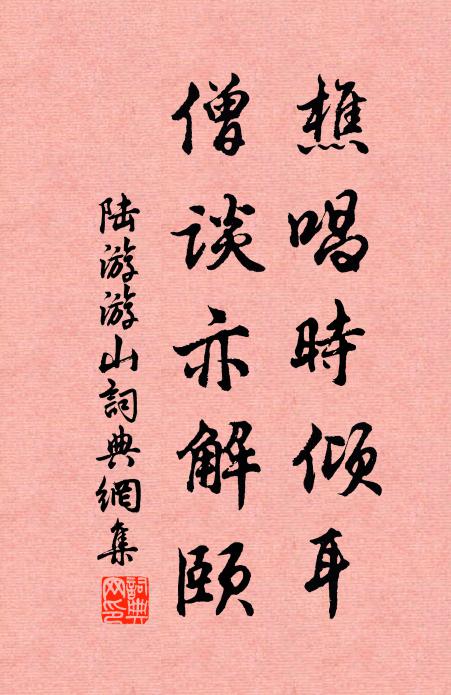 樵唱時傾耳
僧談亦解頤
陆游游山詞典網集
詞典網印